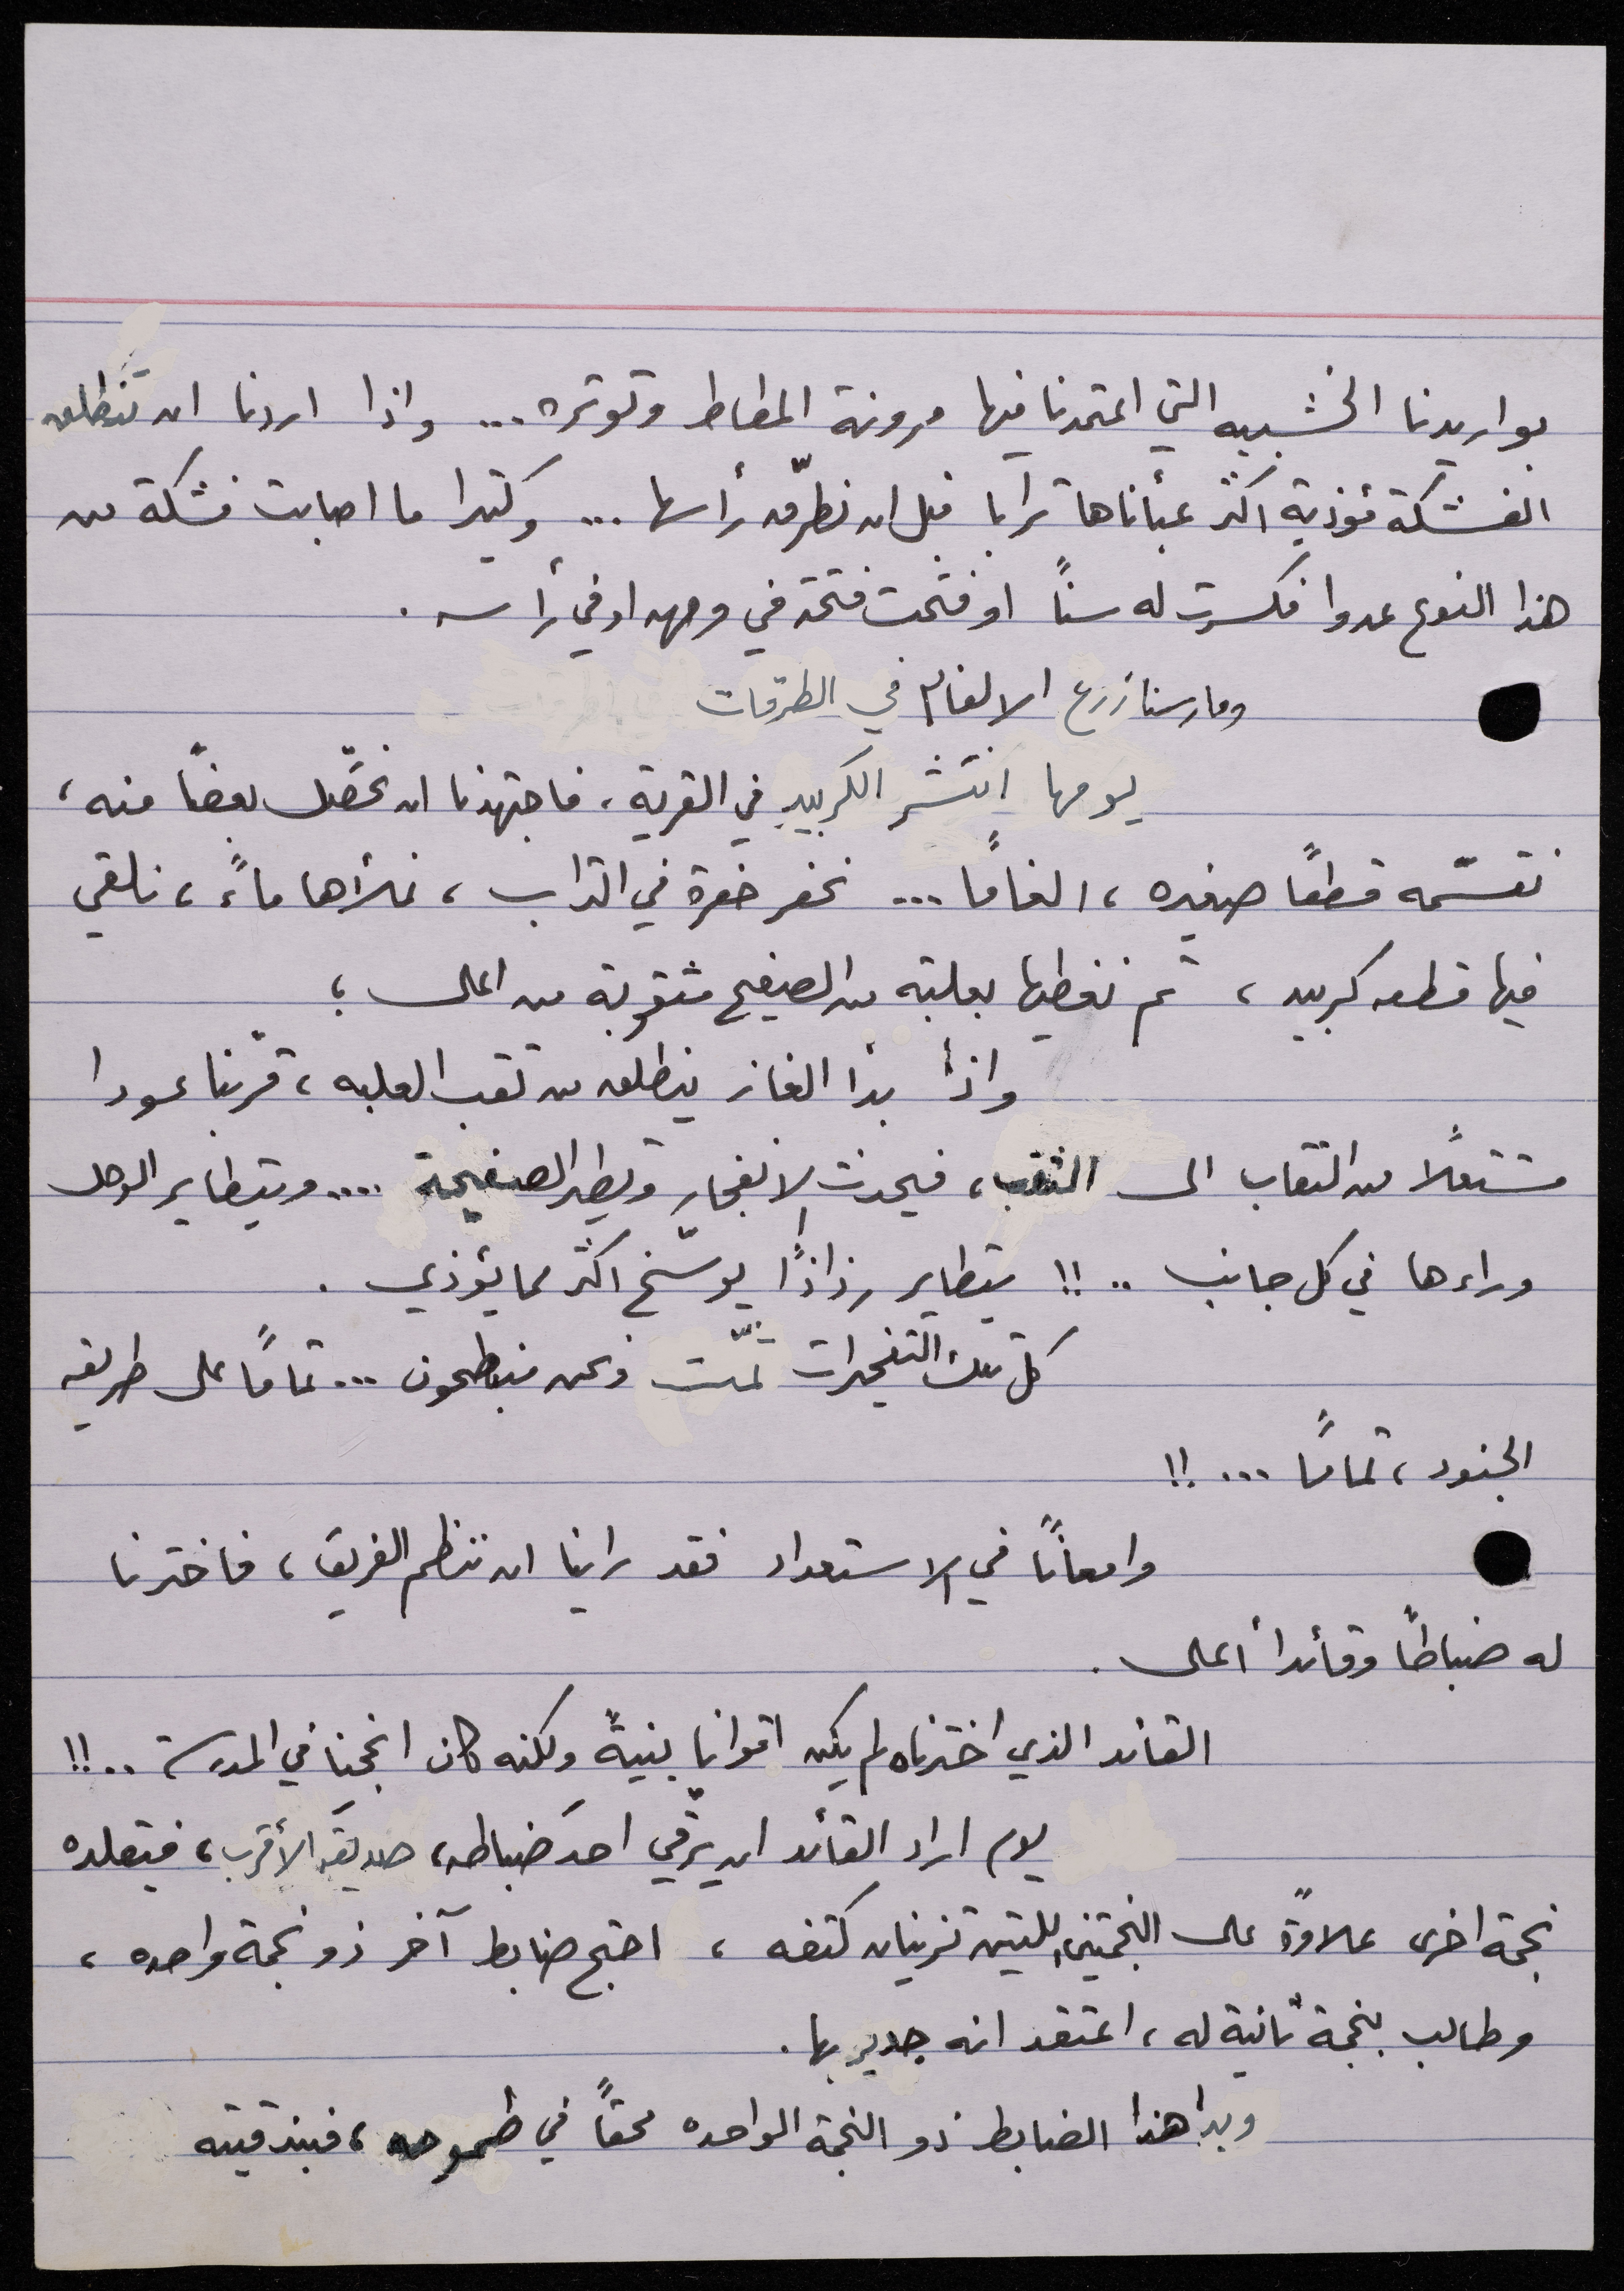 بواريدنا الخشبيه التي اعتمدنا فيها مرونة المطاط وتوتره... واذا اردنا ان تنطلق
الفشكة مؤذية اكثر عبأناها ترابا قبل ان نطرّق رأسها ... وكثيرا ما اصابت فشكة من
هذا النوع عدوا فكسرت له سناً او فتحت فتحة في وجهه او في رأسه .
ومارسنا زرع الالغام في الطرقات
يومها انتشر الكربيد في القرية، فاجتهدنا ان نحصّل بعضاً منه،
نقسّمه قطعًا صغيره، الغامًا ... نحفر حفرة في التراب، نملأها ماءً، نلقي
فيها قطعه كربيد، ثم نغطيها بعلبة من الصفيح مثقوبة من اعلى ؛
واذا بدأ الغاز ينطلق من ثقب العلبه، قرّبنا عودا
مشتعلًا من الثقاب الى الثقب، فيحدث الانفجار وتطير الصفيحة .... ويتطاير الوحل
وراءها في كل جانب .. !! يتطاير رذاذًا يوسّخ اكثر مما يؤذي .
كل تلك التفجيرات تمّت ونحن منبطحون ... تمامًا على طريقه
الجنود، تمامًا ... !!
وامعانًا في الاستعداد فقد راينا ان ننظم الفريق، فاخترنا
له ضباطًا وقائدا أعلى .
القائد الذي اخترناه لم يكن اقوانا بنيةً ولكنه كان انجحنا في المدرسة .. !!
يوم اراد القائد ان يرقّي احد ضباطه، صديقه الأقرب، فيقلده
نجمة اخرى علاوةً على النجمتين اللتين تزينان كتفه ، احتج ضابط آخر ذو نجمة واحده ،
وطالب بنجمة ثانية له، اعتقد انه جدير بها.
وبدا هذا الضابط ذو النجمة الواحده محقاً في طموحه، فبندقيته